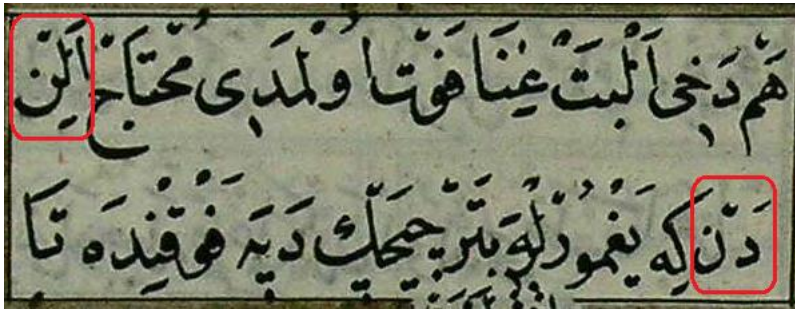 هَمْ دَخِى اَلْبَتَّ غِنَا فَوْتْ اُولْمَدِى مُحْتَاجْ اَلِنْ
دَنْ كِه يَغْمُورْلَرْ بِتَرْ چِيچَكْ دَپَه فَوْقِنْدَه تَا